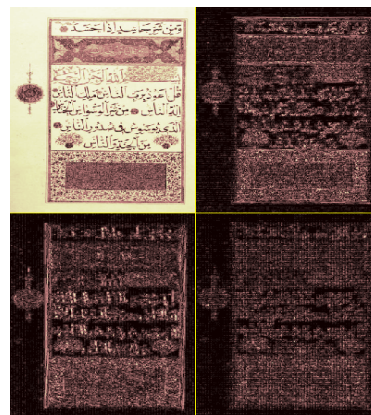 ومن شر حاسد اذا حسد
الله الرحمن الرحيم
قل اعوذ برب الناس ملك الناس
اله الناس من شر الوسواس
الذى يوسوس فى صدور الناس
من الجنة والناس